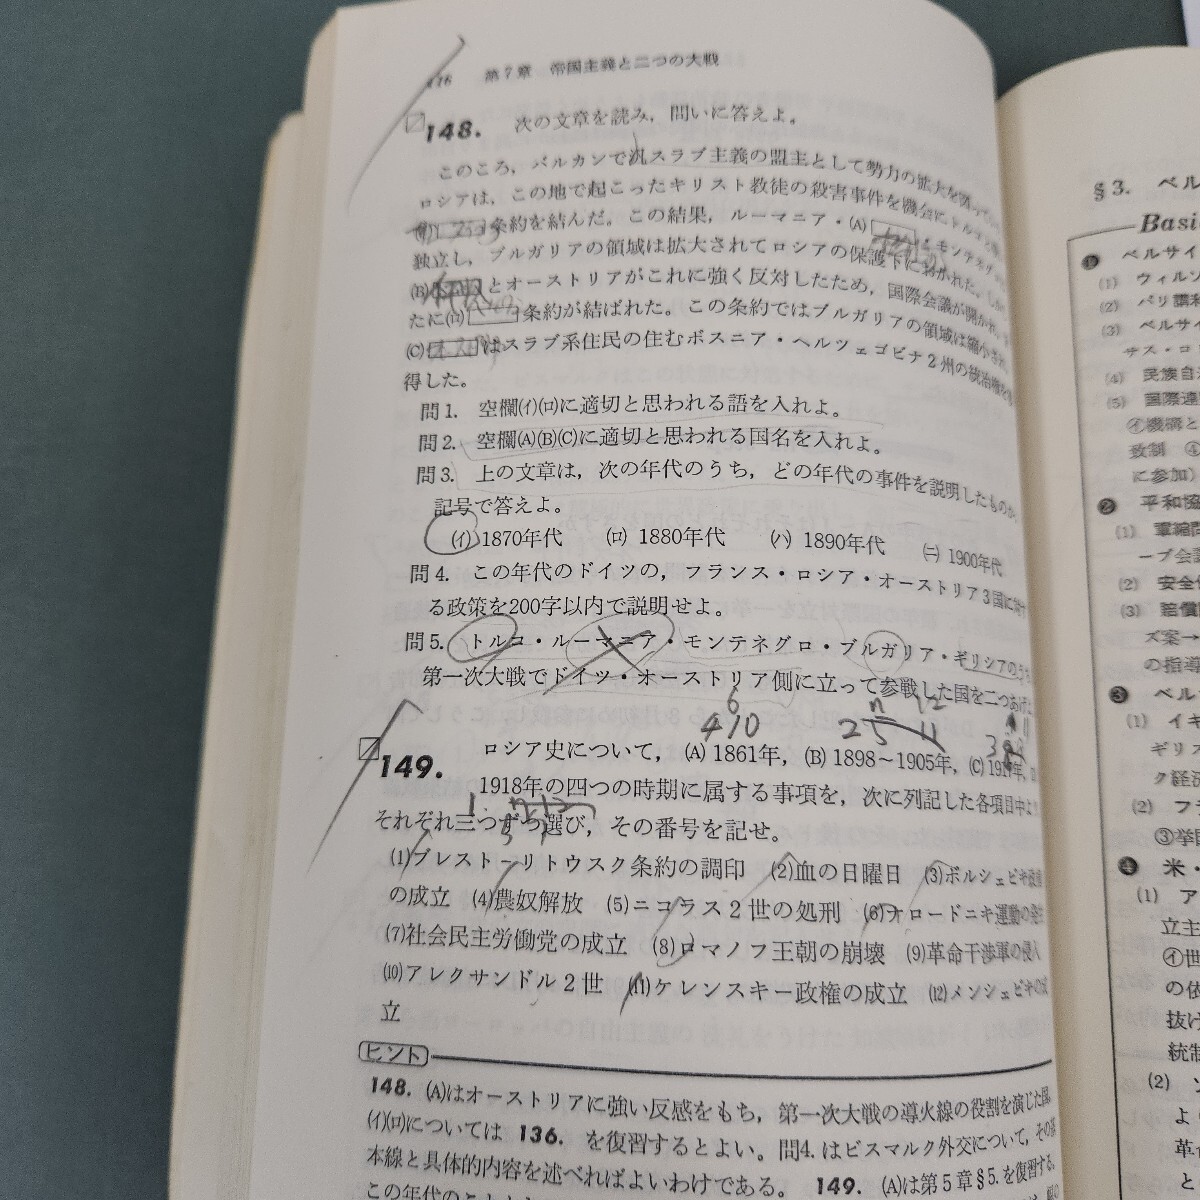 第7章 帝國主義と二つの大戦
148. 次の文章を読み，問いに答えよ。
このころ，バルカンで汎スラブ主義の盟主として勢力の拡大を
ロシアは，この地で起こったキリスト教徒の殺害事件を機会に
条約を結んだ。この結果，ルーマニア・(A)
独立し，ブルガリアの領域は拡大されてロシアの保護下に
(B) とオーストリアがこれに強く反対したため，国際会議が開かれ，
たに(ロ) 条約が結ばれた。この条約ではブルガリアの領域は縮小され，
(C) はスラブ系住民の住むボスニア・ヘルツェゴビナ2州の統治権を
得した。
問1. 空欄(イ)(ロ)に適切と思われる語を入れよ。
問2. 空欄(A)(B)(C)に適切と思われる国名を入れよ。
問3. 上の文章は，次の年代のうち，どの年代の事件を説明したものか，
記号で答えよ。
(イ) 1870年代 (ロ) 1880年代 (ハ) 1890年代 (ニ) 1900年代
問4. この年代のドイツの，フランス・ロシア・オーストリア3国に対す
る政策を200字以内で説明せよ。
問5. トルコ・ルーマニア・モンテネグロ・ブルガリア・ギリシアのうち
第一次大戦でドイツ・オーストリア側に立って参戦した国を二つあげよ
6 11 12
4 10 25 11
149. ロシア史について，(A) 1861年，(B) 1898～1905年，(C)
1918年の四つの時期に属する事項を，次に列記した各項目中より
それぞれ三つずつ選び，その番号を記せ。
(1)ブレスト−リトウスク条約の調印 (2)血の日曜日 (3)ボルシェビキ
の成立 (4)農奴解放 (5)ニコラス2世の処刑 (6)ナロードニキ運動の発生
(7)社会民主労働党の成立 (8)ロマノフ王朝の崩壊 (9)革命干渉軍の侵入
(10)アレクサンドル2世 (11)ケレンスキー政権の成立 (12)メンシェビキの成
立
ヒント
148. (A)はオーストリアに強い反感をもち，第一次大戦の導火線の役割を演じた国。
(イ)(ロ)については 136. を復習するとよい。問4. はビスマルク外交について，その基
本線と具体的内容を述べればよいわけである。 149. (A)は第5章§5.を復習する。
§3. ベル
Basi
❶ ベルサイ
(1) ウィルソ
(2) パリ講和
(3) ベルサイ
サス・ロ
(4) 民族自決
(5) 国際連
㋑機構と
致制 ④
に参加)
❷ 平和協
(1) 軍縮問
ーブ会議
(2) 安全
(3) 賠償
ズ案→
の指導
❸ ベル
(1) イキ
ギリス
ク経済
(2) フラ
③挙国
❹ 米・
(1) ア
立主
㋑世
の依
抜け
統制
(2) ソ
よ
革命
と